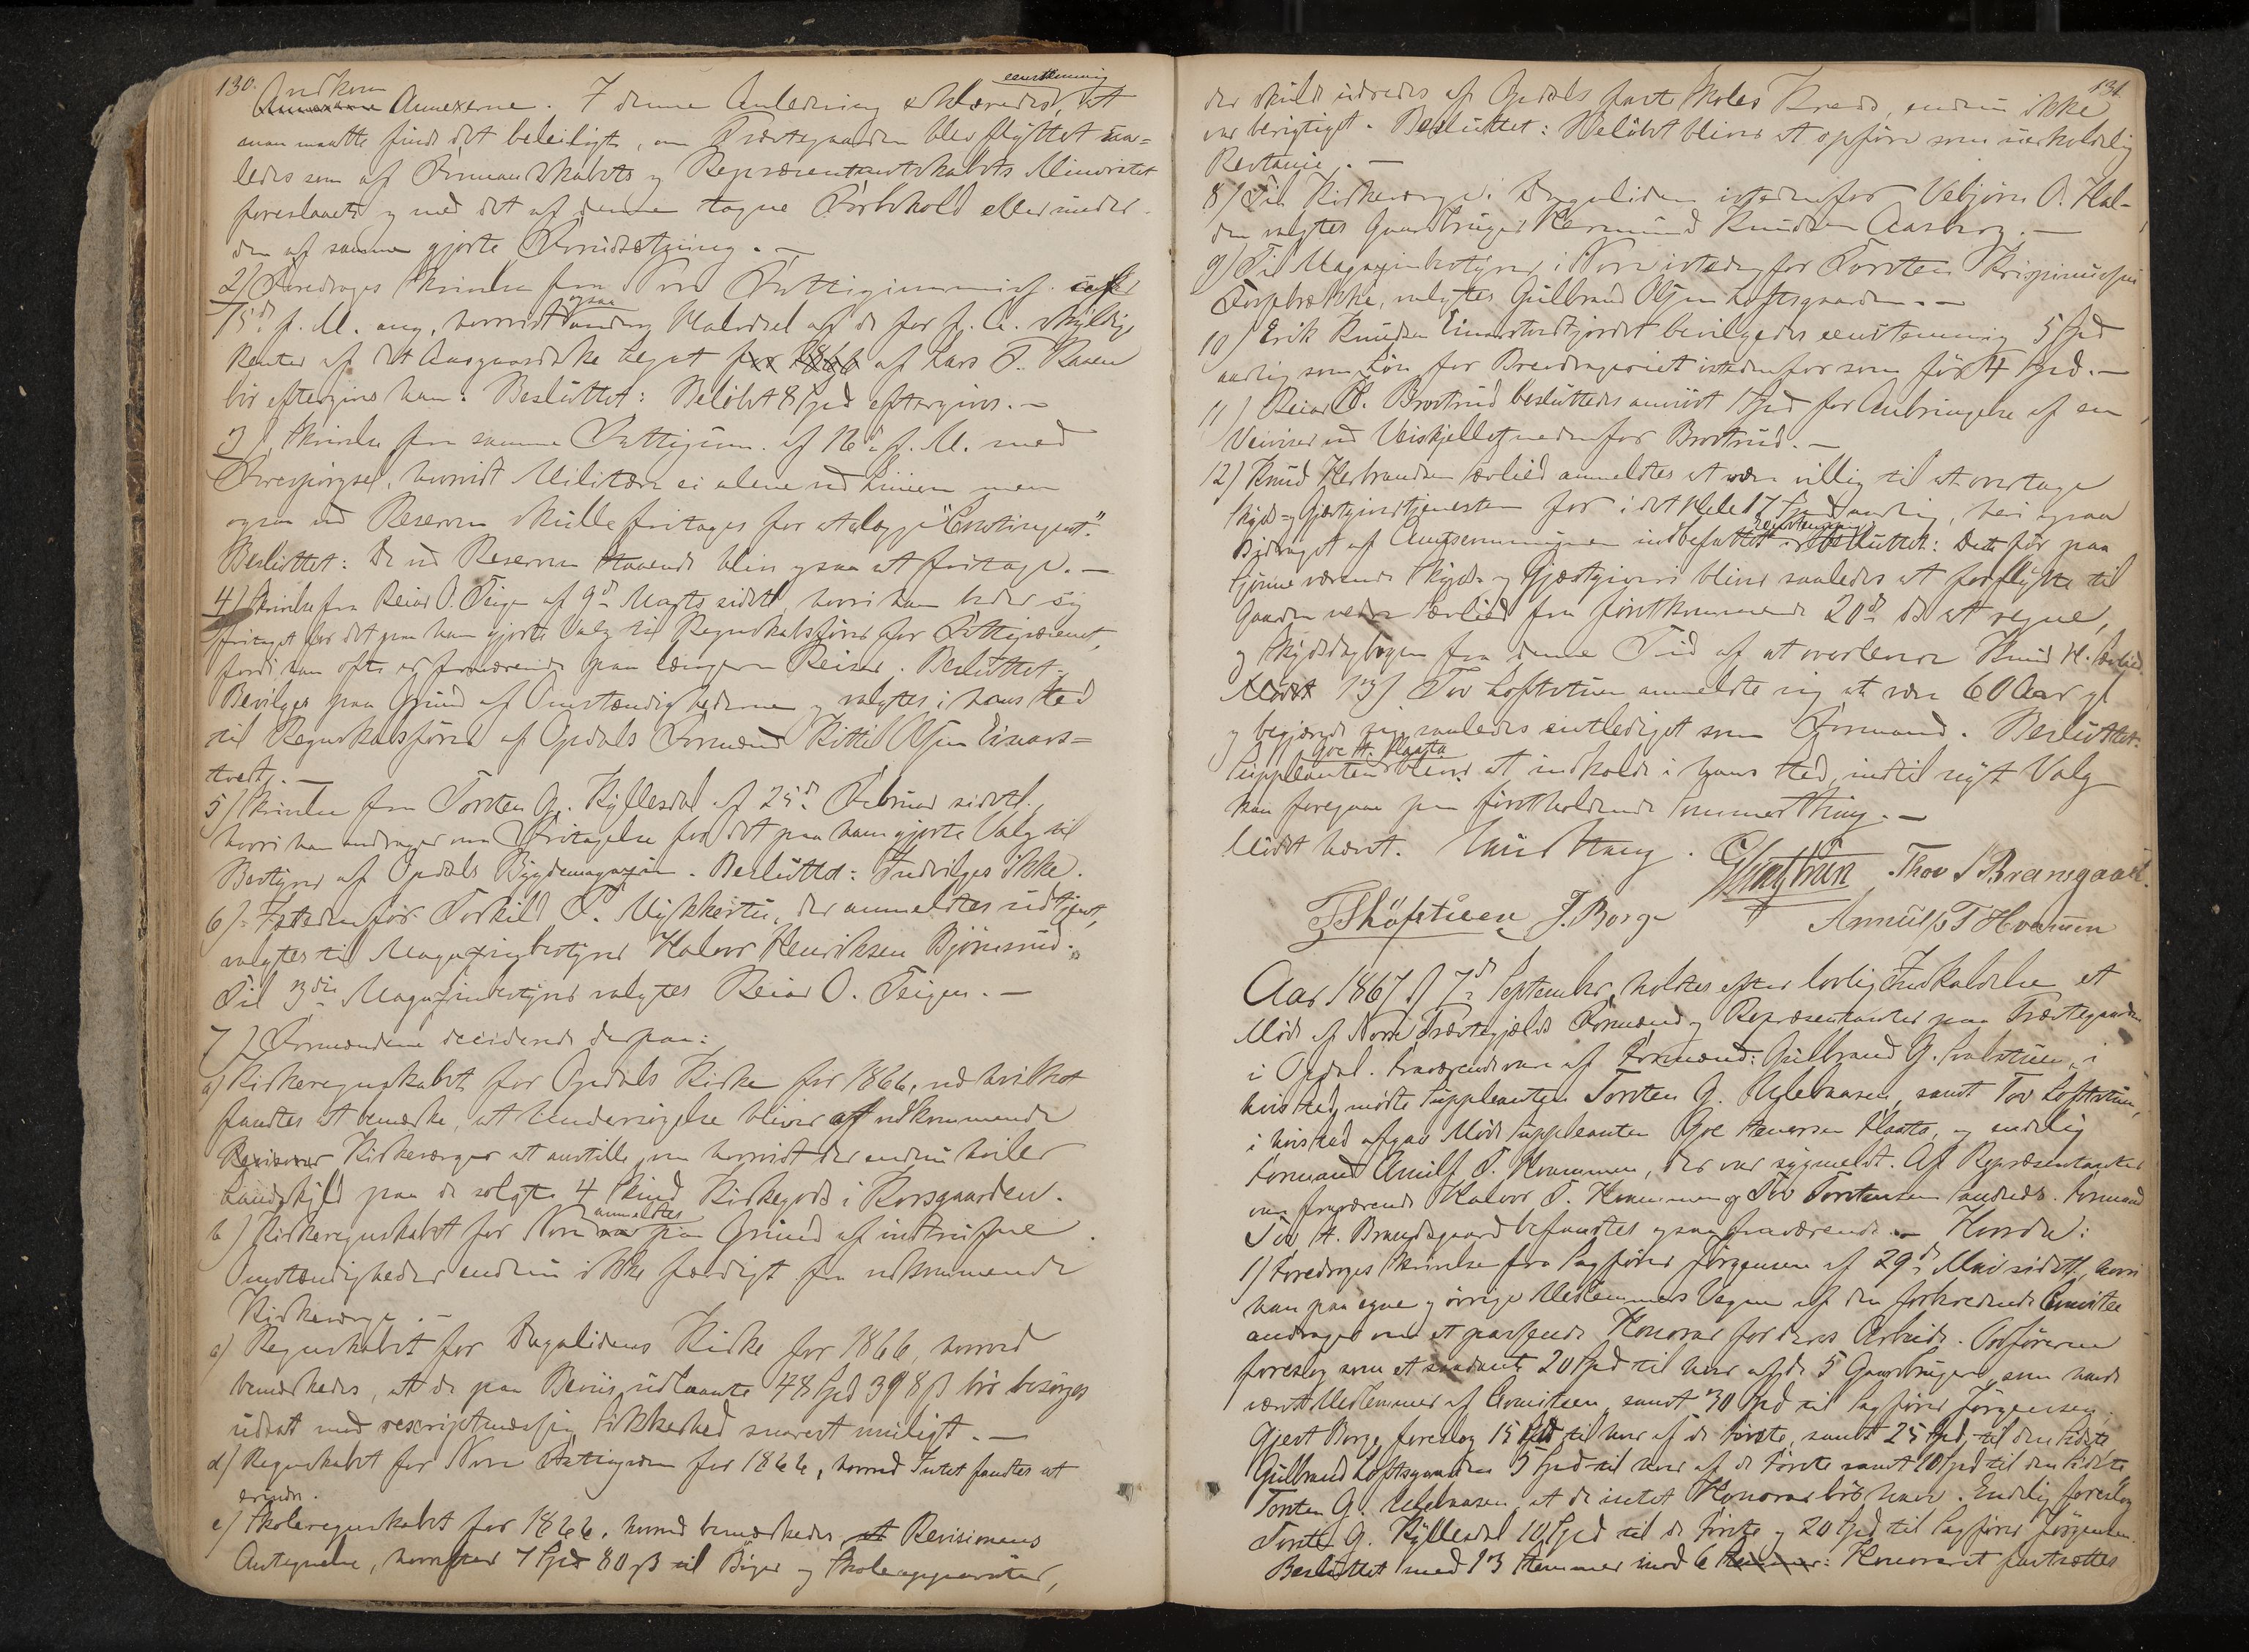 130.
Annexerne. I denne Anledning erklæredes eenstemmig, at
man maatte finde det beleiligt, om Præstegaarden blev flyttet saa=
ledes som af Formandskabets og Repræsentantskabets Minoritet
foreslaaet og med det af denne tagne Forbehold eller under
den af samme gjorte Forudsætning. —
2) Foredroges Skrivelse fra Nore Fattigcommission af
15de f. M. ang. hvorvidt ogsaa anden Halvdel af de for f. A. skyldige
Renter af det Aasgaardske Legat af Lars T. Raaen
bør eftergives ham. Besluttet: Beløbet 8 Spd eftergives. —
3) Skrivelse fra samme Fattigcom. af 16de f. M. med
Forespørgsel, hvorvidt Militære ei alene ved Linien men
ogsaa ved Reserven skulle fritages for at lægge "Contingent."
Besluttet: De ved Reserven staaende blive ogsaa at fritage. —
4) Skrivelse fra Reiar O. Teigen af 9de Marts sidstl, hvori han beder sig
fritaget for det paa ham gjorte Valg til Regnskabsfører for Fattigvæsenet,
fordi han ofte er fraværende paa længere Reiser. Besluttet:
Bevilges paa Grund af Omstændighederne og valgtes i hans Sted
til Regnskabsfører af Opdals Formænd Kittil Olsen Einars=
tvedt. —
5) Skrivelse fra Torsten G. Kyllesdal af 25de Februar sidstl.,
hvori han andrager om Fritagelse for det paa ham gjorte Valg til
Bestyrer af Opdals Bygdemagazin. Besluttet: Indvilges ikke.
6) Istedenfor Torkild T. Mykkestu, der anmeldtes udtjent,
valgtes til Magazinbestyrer Halvor Henriksen Bjørnsrud.
Til 3die Magazinbestyrer valgtes Reiar O. Teigen. —
7) Formændene deciderede derpaa:
a) Kirkeregnskabet for Opdals Kirke for 1866, ved hvilket
fandtes at bemærke, at Undersøgelse bliver af vedkommende
Kirkeværger at anstille, om hvorvidt der endnu hviler
Landskyld paa de solgte 4 Skind Kirkegods i Korsgaarden.
b) Kirkeregnskabet for Nore anmeldtes paa Grund af indtrufne
Omstændigheder endnu ikke færdigt fra vedkommende
Kirkeværge. —
c) Regnskabet for Dagalidens Kirke for 1866, hvorved
bemærkedes, at de paa Beviis udlaante 48 Spd 3 ort 8 ß bør besørges
udsat med rescriptmæssig Sikkerhed snarest muligt. —
d) Regnskabet for Nore Fattigvæsen for 1866, hvorved Intet fandtes at
erindre.
e) Skoleregnskabet for 1866, hvorved bemærkedes Revisionens
Antegnelse, hvorefter 7 Spd 80 ß til Bøger og Skoleapparater,
131
der skulde udredes af Opdals faste Skoles Kreds, endnu ikke
var berigtiget. Besluttet: Beløbet bliver at opføre som uerholdelig
Restanse. —
8) Til Kirkeværge i Dagaliden istedenfor Vebjørn O. Hal-
den valgtes Gaardbruger Hermund Knudsen Aasberg. —
9) Til Magazinbestyrer i Nore istedenfor Torsten
valgtes Gulbrand Olsen Loftsgaarden. —
10) Erik Knudsen bevilgedes eenstemmig 5 Spd
aarlig som Løn for Brevdrageriet istedenfor som før 4 Spd. —
11) Reiar H. Brostrud besluttedes anviist 1 Spd for Anbringelse af en
Veiviser ved Veiskjellet nedenfor Brostrud. —
12) Knud Herbrandsen anmeldtes at være villig til at overtage
Skyds- og Gjæstgiveritjenesten for i det Hele 17 Spd aarlig, heri ogsaa
Bidraget af Amtscommunen indbefattet. eenstemmig besluttet: Dette før paa
værende Skyds- og Gjæstgiveri bliver saaledes at forflytte til
Gaarden fra førstkommende 20de ds at regne,
og Skydsdagbogen fra denne Tid af at overlevere Knud H.
13) Tov Loftstuen anmeldte sig at være 60 Aar gl
og begjærede sig saaledes entlediget som Formand. Besluttet:
Suppleanten Goe H. Slaata bliver at indkalde i hans Sted, indtil nyt Valg
kan foregaae paa førstholdende Sommerthing. —
Mødet hævet.
Thov S Brænsgaard.
J. Borge
Arnulf T Hvammen
Aar 1867 d 7de September holdtes efter lovlig Indkaldelse et
Møde af Nore Præstegjælds Formænd og Repræsentanter paa Præstegaarden
i Opdal. Fraværende vare af Formænd: Gulbrand G. , i
hvis Sted mødte Suppleanten Torsten G. Uglebaasen, samt Tov Loftstuen,
i hvis Sted afgav Møde Suppleanten Goe Haversen Slaata, og endelig
Formand Arnulf T. Hvammen, der var sygmeldt. Af Repræsentanter
var fraværende Halvor T. Hvammen og Tov Torstensen . Formand
Tov H. Brandsgaard befandtes ogsaa fraværende. — Hvorda:
1) Foredroges Skrivelse fra Sagfører Jørgensen af 29de Mai sidstl., hvori
han paa egne og øvrige Medlemmers Vegne af den Comitee
andrager om et passende Honorar for deres Arbeide. Ordføreren
foreslog som et saadant 20 Spd til hver af de 5 Gaardbrugere, som havde
været Medlemmer af Comiteen, samt 30 Spd til Sagfører Jørgensen,
Gjest Borge foreslog 15 Spd til hver af de første, samt 25 Spd til den sidste
Gulbrand Loftsgaarden 5 Spd til hver af de første samt 10 Spd til den sidste
Torsten G. Uglebaasen at de intet Honorar bør have. Endelig foreslog
Torsten G. Kyllesdal 10 Spd til de første og 20 Spd til Sagfører Jørgensen.
Besluttet med 13 Stemmer imod 6 : Honoraret fastsættes